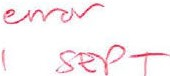 error
1 SEPT